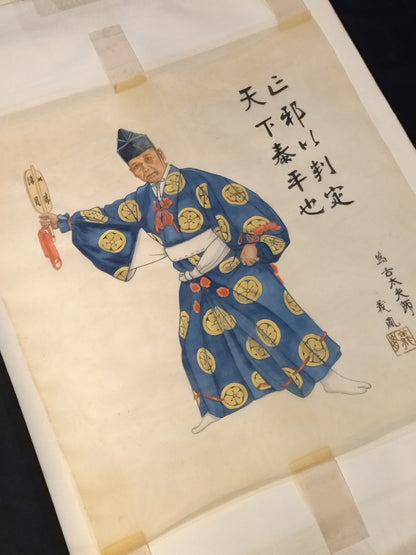 正邪以判定
天下泰平也
古太夫